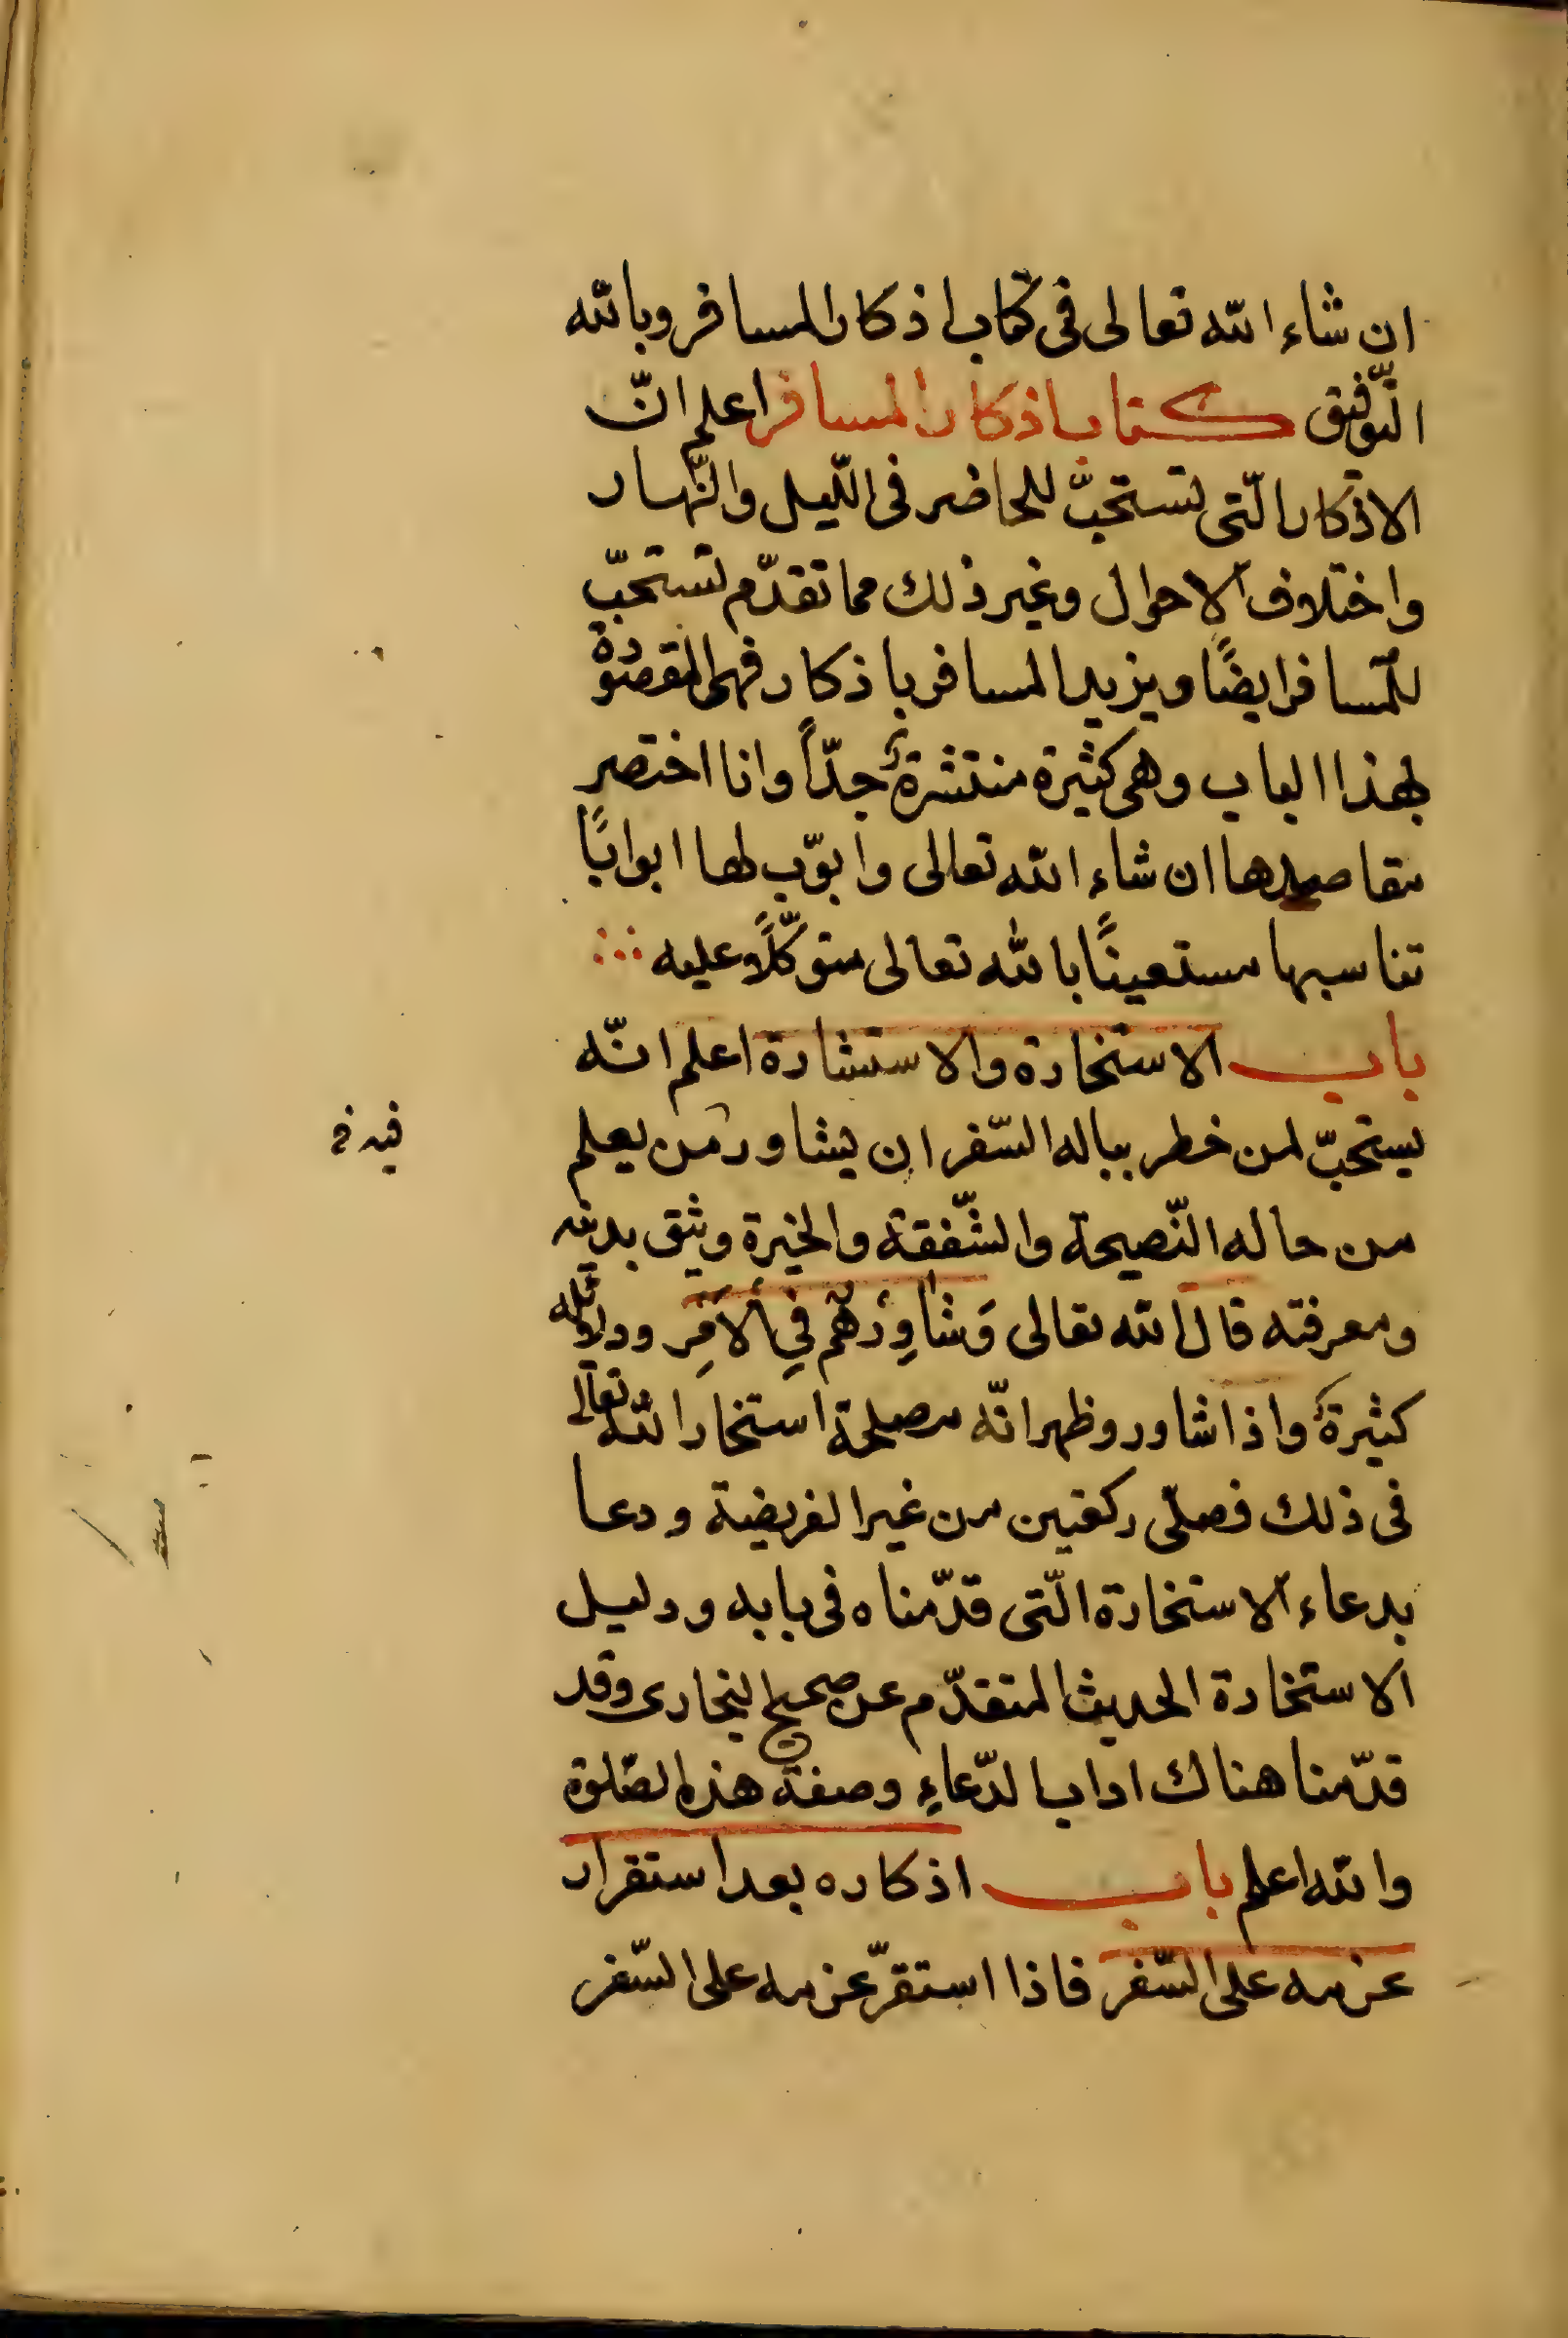 ان شاء الله تعالى فى كتاب اذكار المسافر وبالله
التّوفيق كتاب اذكار المسافر اعلم انّ
الاذكار الّتى تستحبّ للحاضر فى اللّيل والنّهار
واختلاف الاحوال وغير ذلك مما تقدّم تستحبّ
للمسافر ايضًا ويزيد المسافر باذكار فهى المقصودة
لهذا الباب وهى كثيرة منتشرة جدّاً وانا اختصر
مقاصدها ان شاء الله تعالى وابوّب لها ابوابًا
تناسبها مستعينًا بالله تعالى متوكّلًا عليه
باب الاستخارة والاستشارة اعلم انّه
يستحبّ لمن خطر بباله السّفر ان يشاور من يعلم
فيه خ
من حاله النّصيحة والشّفقة والخبرة ويثق بدينه
ومعرفته قال الله تعالى وَشَاوِرْهُم فِي الاَمْرِ ودلائله
كثيرة واذا شاور وظهر انّه مصلحة استخار الله تعالى
فى ذلك فصلّى ركعتين من غير الفريضة ودعا
بدعاء الاستخارة الّتى قدّمناه فى بابه ودليل
الاستخارة الحديث المتقدّم عن صحيح البخارى وقد
قدّمنا هناك اداب الدّعاءِ وصفة هذه الصّلوة
والله اعلم باب اذكاره بعد استقرار
عزمه على السّفر فاذا استقرّ عزمه على السّفر